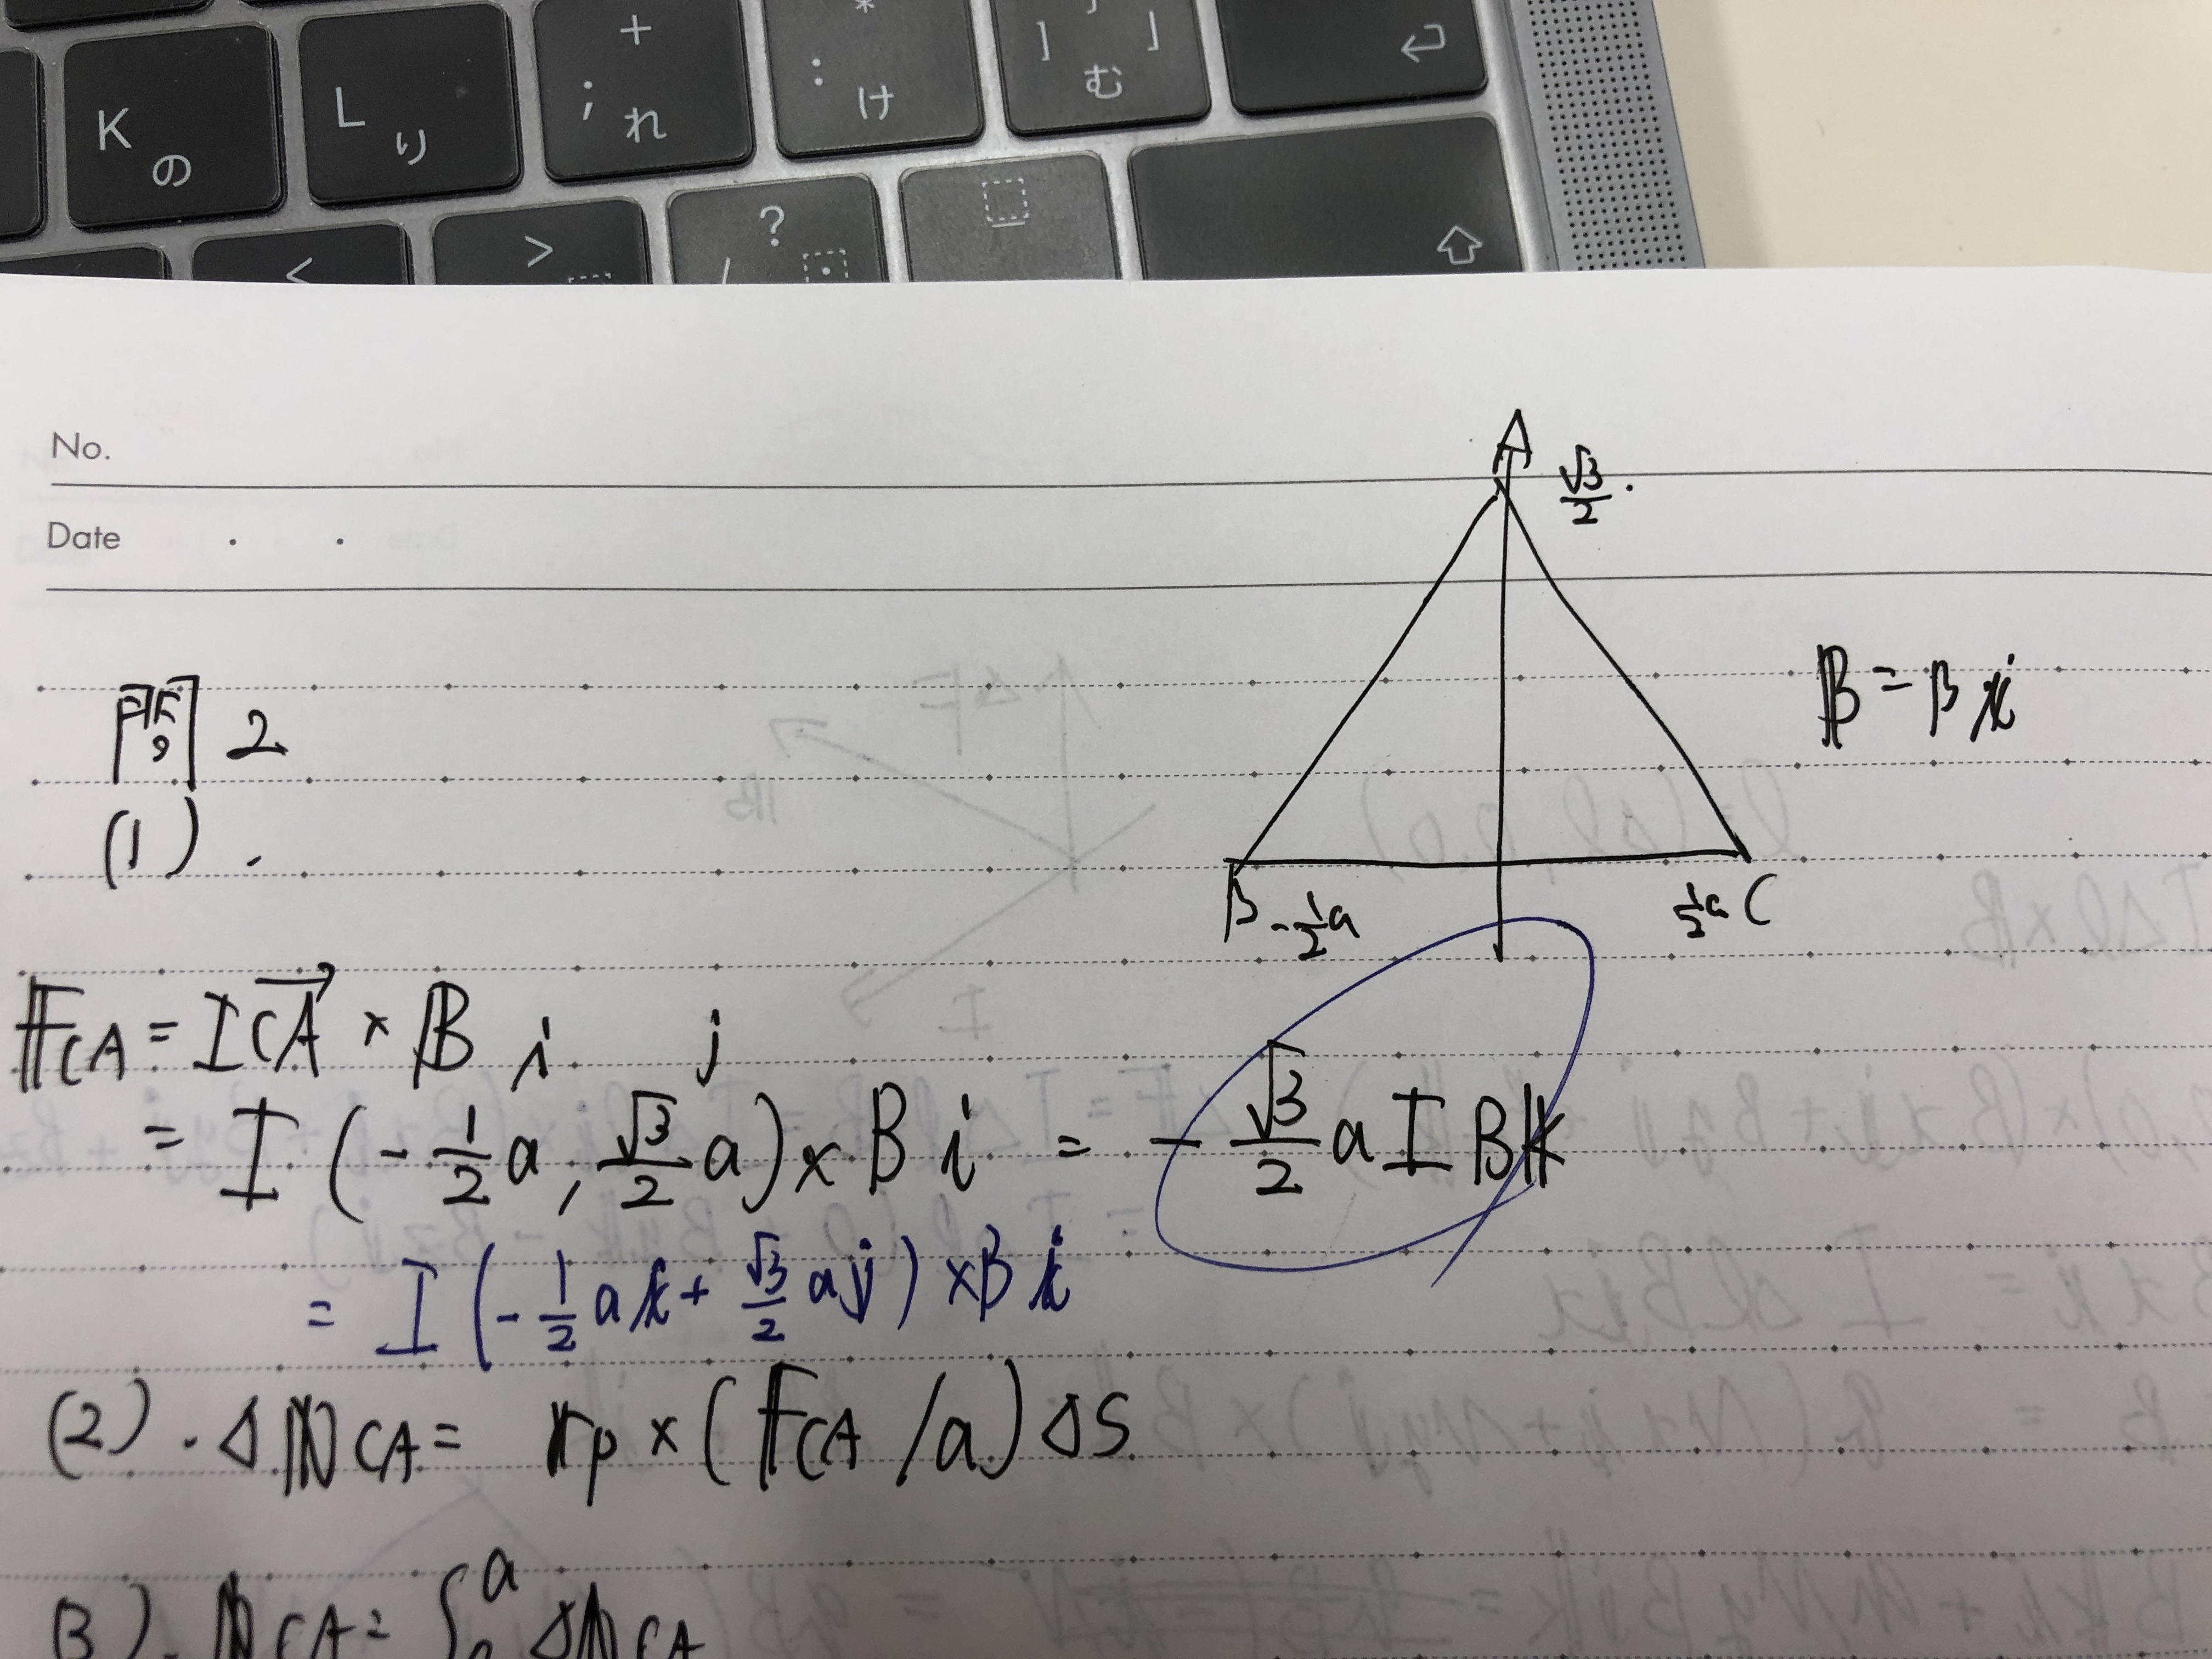 K の
L り
+ ; れ
* : け
] 」 む
<
>
?
No.
Date . .
A
√3/2.
B -1/2a
1/2a C
𝔹 = B𝕚
問2
(1).
𝔽CA = I CA→ × 𝔹
i j
= I (-1/2 a, √3/2 a) × B i = - √3/2 a I B𝕜
= I (-1/2 a𝕚 + √3/2 a𝕛) × B𝕚
(2). Δℕ CA = 𝕣p × (𝔽CA /a) ΔS
3). ℕ CA = ∫ a Δℕ CA